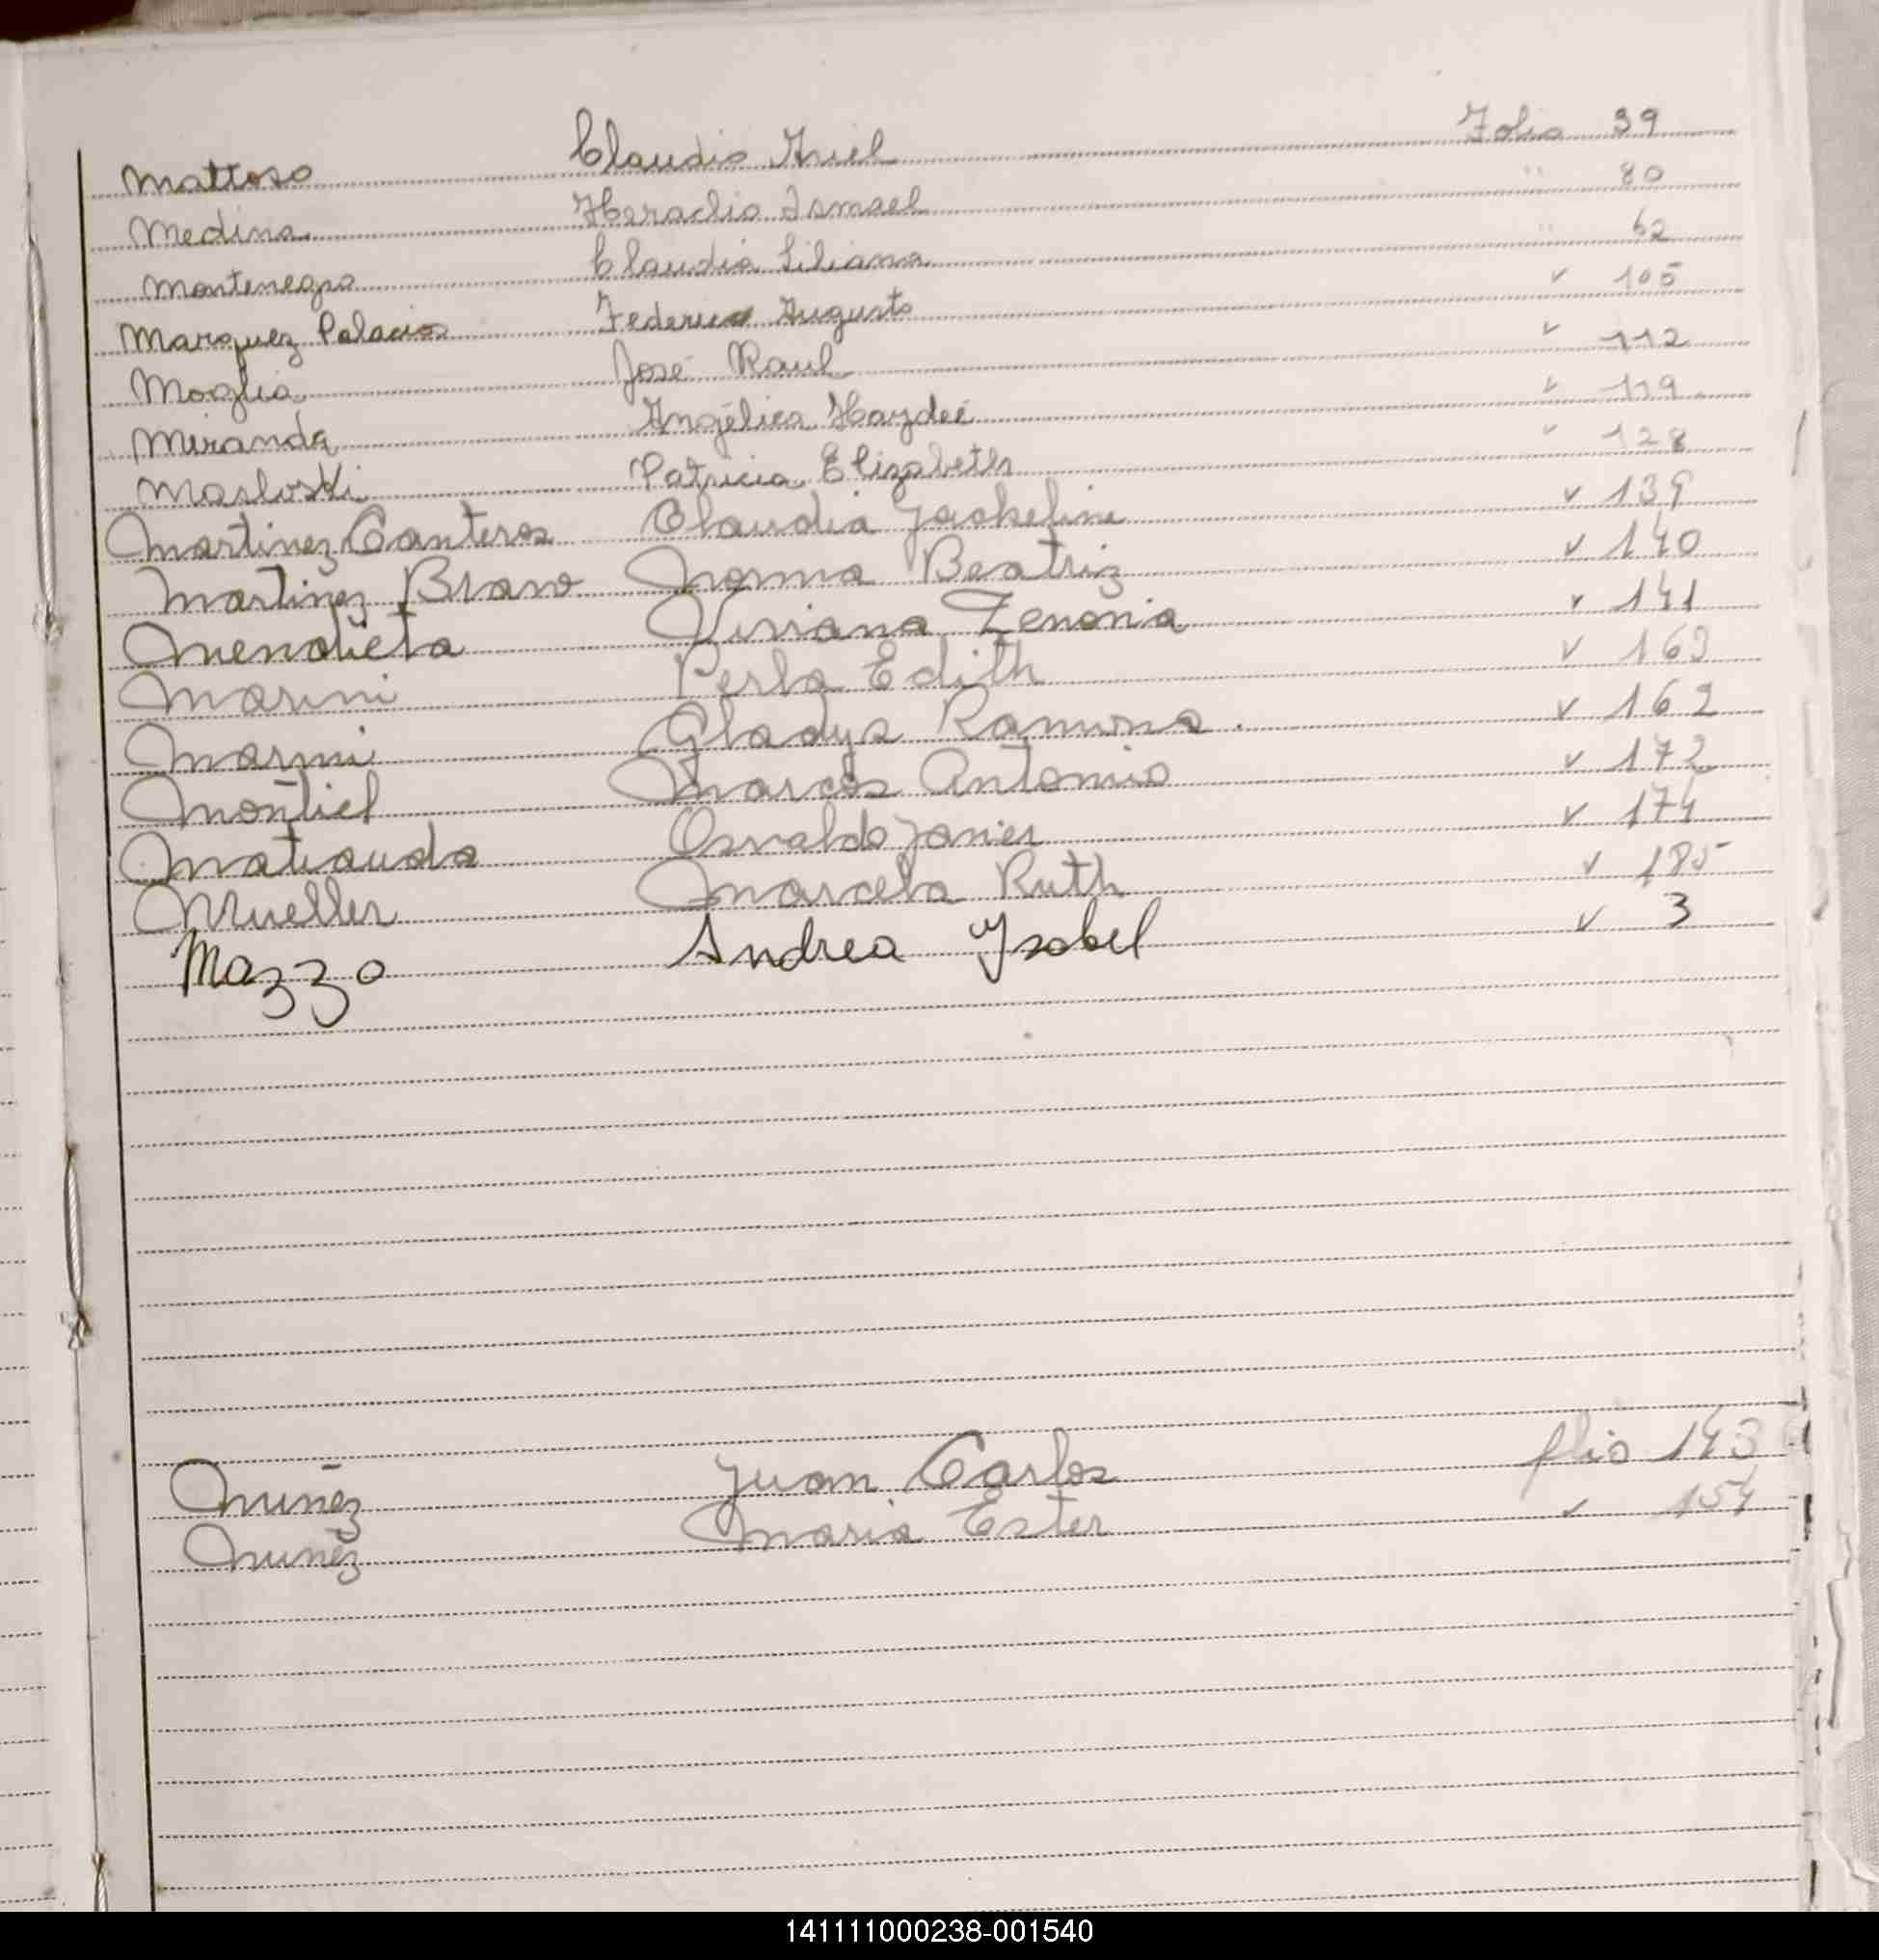 Mattoso Claudio Ariel Folio 39
Medina Heraclio Ismael " 80
Montenegro Claudia Liliana " 62
Marquez Palacios Federico Augusto " 105
Moglia José Raul " 112
Miranda Angélica Haydeé " 119
Masloski Patricia Elizabeth " 128
Martinez Canteros Claudia Jackeline " 139
Martinez Bravo Norma Beatriz " 140
Mendieta Viviana Zenonia " 141
Marini Perla Edith " 163
Marini Gladys Ramona " 162
Montiel Marcos Antonio " 172
Matiauda Osvaldo Javier " 174
Mueller Marcela Ruth " 185
Mazzo Andrea Ysabel " 3
Nuñez Juan Carlos flio 143
Nuñez Maria Ester " 154
141111000238-001540